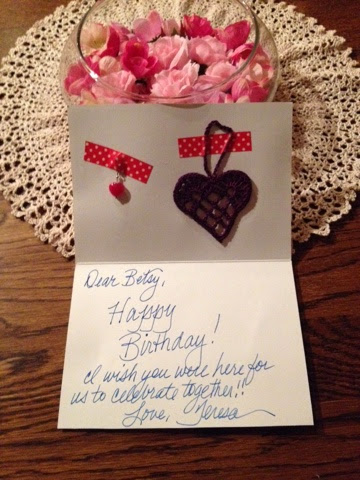 Dear Betsy,
Happy
Birthday!
I wish you were here for
us to celebrate together!!
Love, Teresa